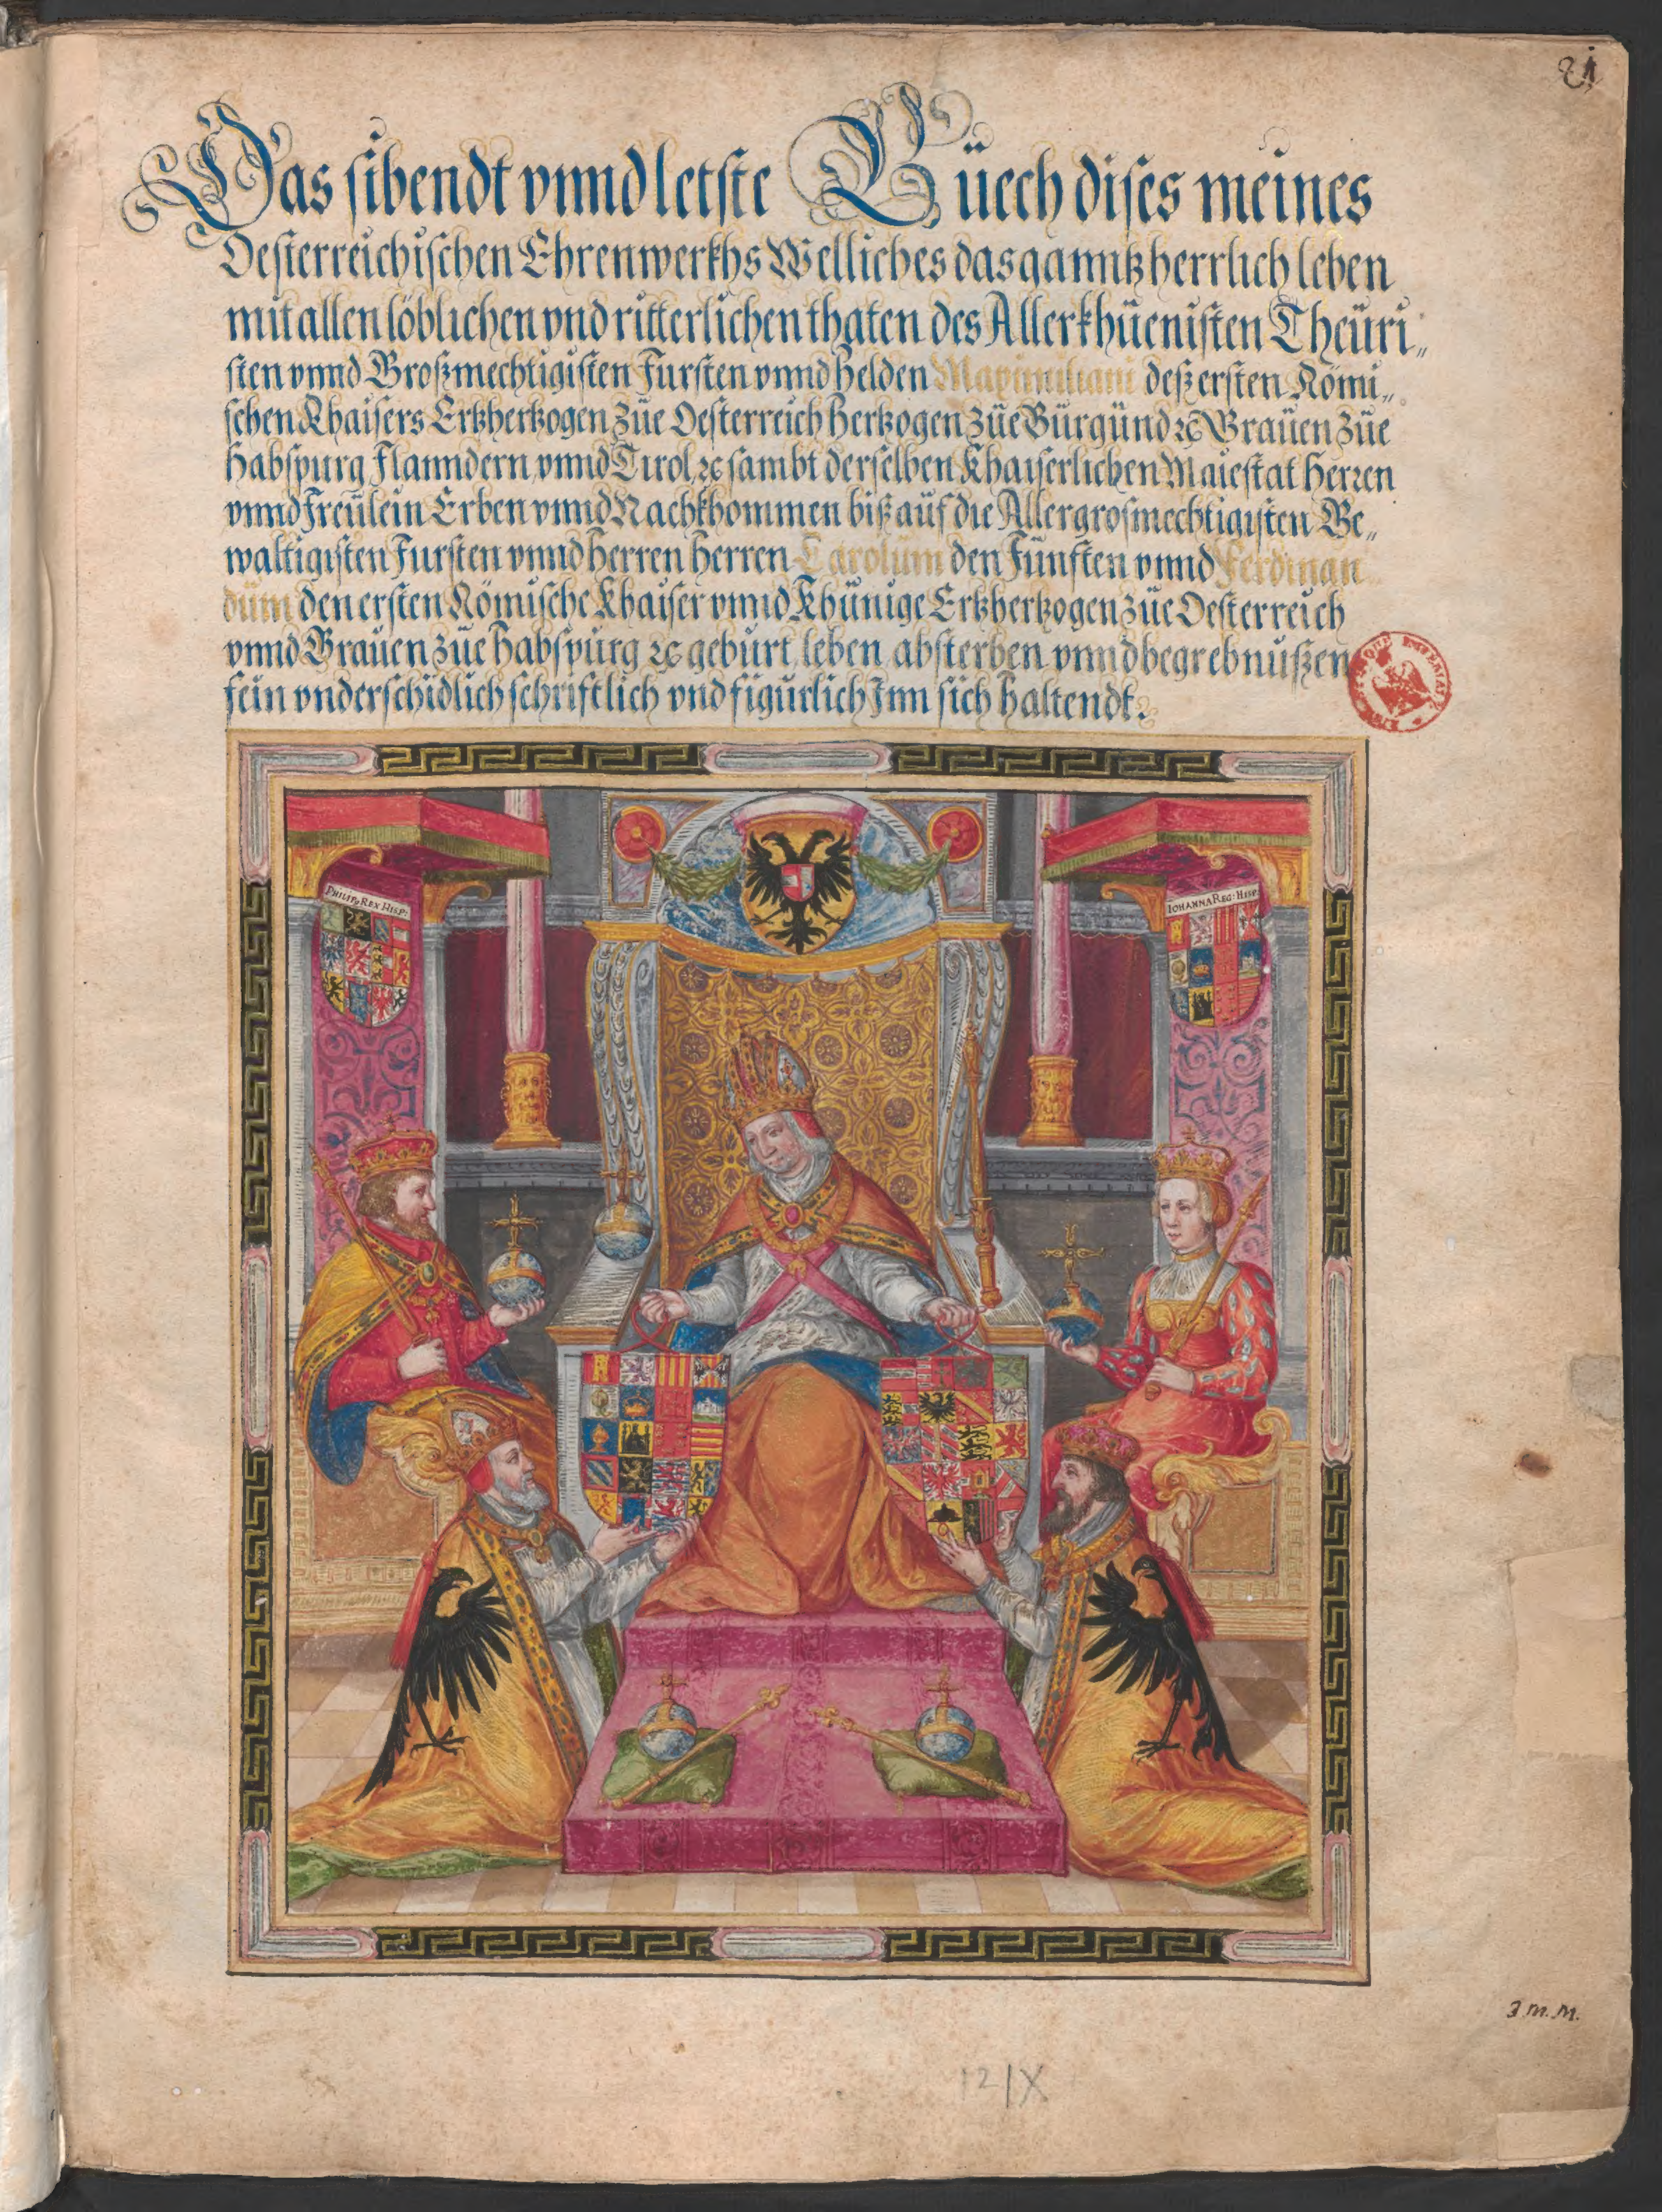 21
Das sibendt vnnd letste Büech dises meines
Oesterreichischen Ehrenwerkhs Welliches das ganntz herrlich leben
mit allen löblichen vnd ritterlichen thaten des Allerkhüenisten Theüri„
sten vnnd Großmechtigisten Fursten vnnd Helden Maximiliani deß ersten Römi„
schen Khaisers Ertzhertzogen züe Oesterreich Hertzogen züe Bürgünd ⁊c Grauen züe
Habspurg Flanndern vnnd Tirol ⁊c sambt derselben Khaiserlichen Maiestat Herren
vnnd Freülein Erben vnnd Nachkhommen biß aüf die Allergrosmechtigisten Ge„
waltigisten Fursten vnnd Herren Herren Carolüm den Fünften vnnd Ferdinan
düm den ersten Römische Khaiser vnnd Khünige Ertzhertzogen züe Oesterreich
vnnd Grauen züe Habspürg ⁊c gebürt leben absterben vnnd begrebnüßen
fein vnderschidlich schriftlich vnd figürlich Inn sich haltendt.
PHILIPP9 REX HISP:
IOHANNA REG: HISP:
3.m.m.
12/X